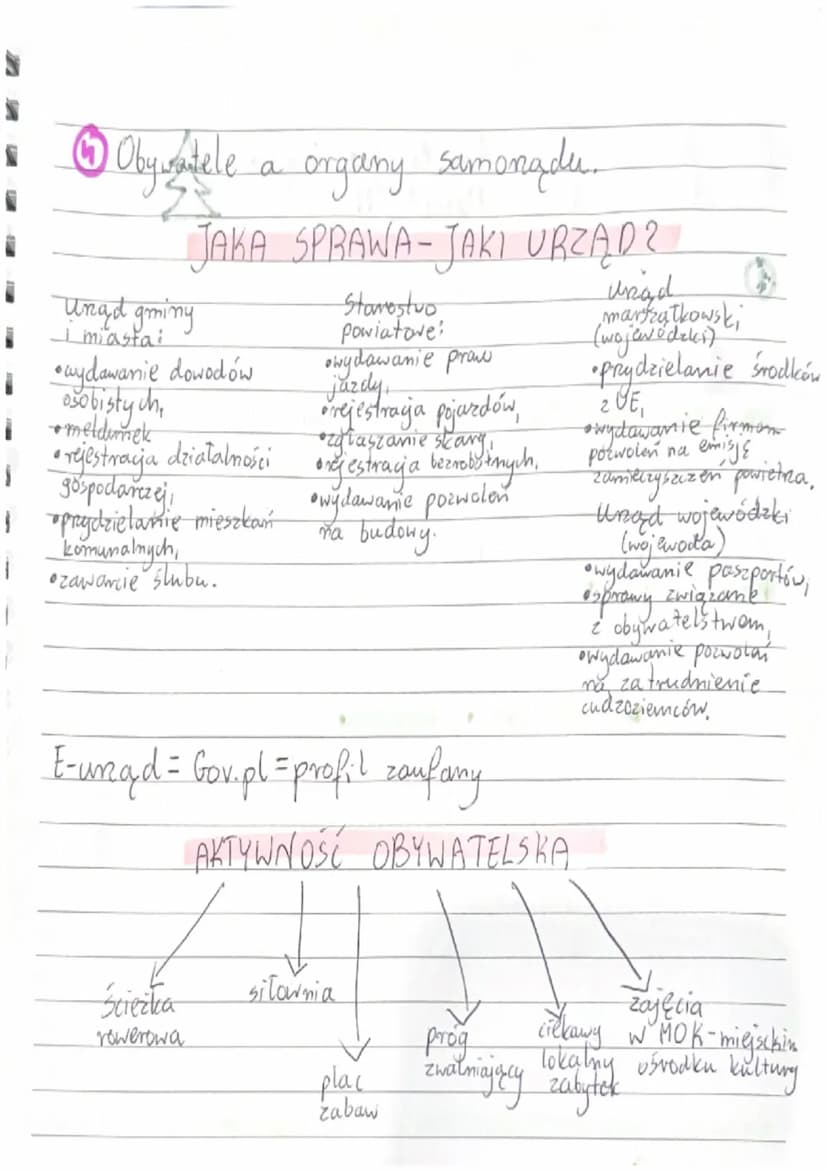 4 Obywatele a organy samorządu.
JAKA SPRAWA - JAKI URZĄD?
Urząd gminy
i miasta:
•wydawanie dowodów
osobistych,
•meldunek
•rejestracja działalności
gospodarczej,
•przydzielanie mieszkań
komunalnych,
•zawarcie ślubu.
Starostwo
powiatowe:
•wydawanie praw
jazdy,
•rejestracja pojazdów,
•zgłaszanie skarg,
•rejestracja bezrobotnych,
•wydawanie pozwoleń
na budowy.
Urząd
marszałkowski,
(wojewódzki)
•przydzielanie środków
z UE,
•wydawanie firmom
pozwoleń na emisję
zanieczyszczeń powietrza.
Urząd wojewódzki
(wojewoda)
•wydawanie paszportów,
•sprawy związane
z obywatelstwem,
•wydawanie pozwoleń
na zatrudnienie
cudzoziemców.
E-urząd = Gov.pl = profil zaufany
AKTYWNOŚĆ OBYWATELSKA
ścieżka
rowerowa
siłownia
plac
zabaw
próg
zwalniający
ciekawy
lokalny
zabytek
zajęcia
w MOK-miejskim
ośrodku kultury